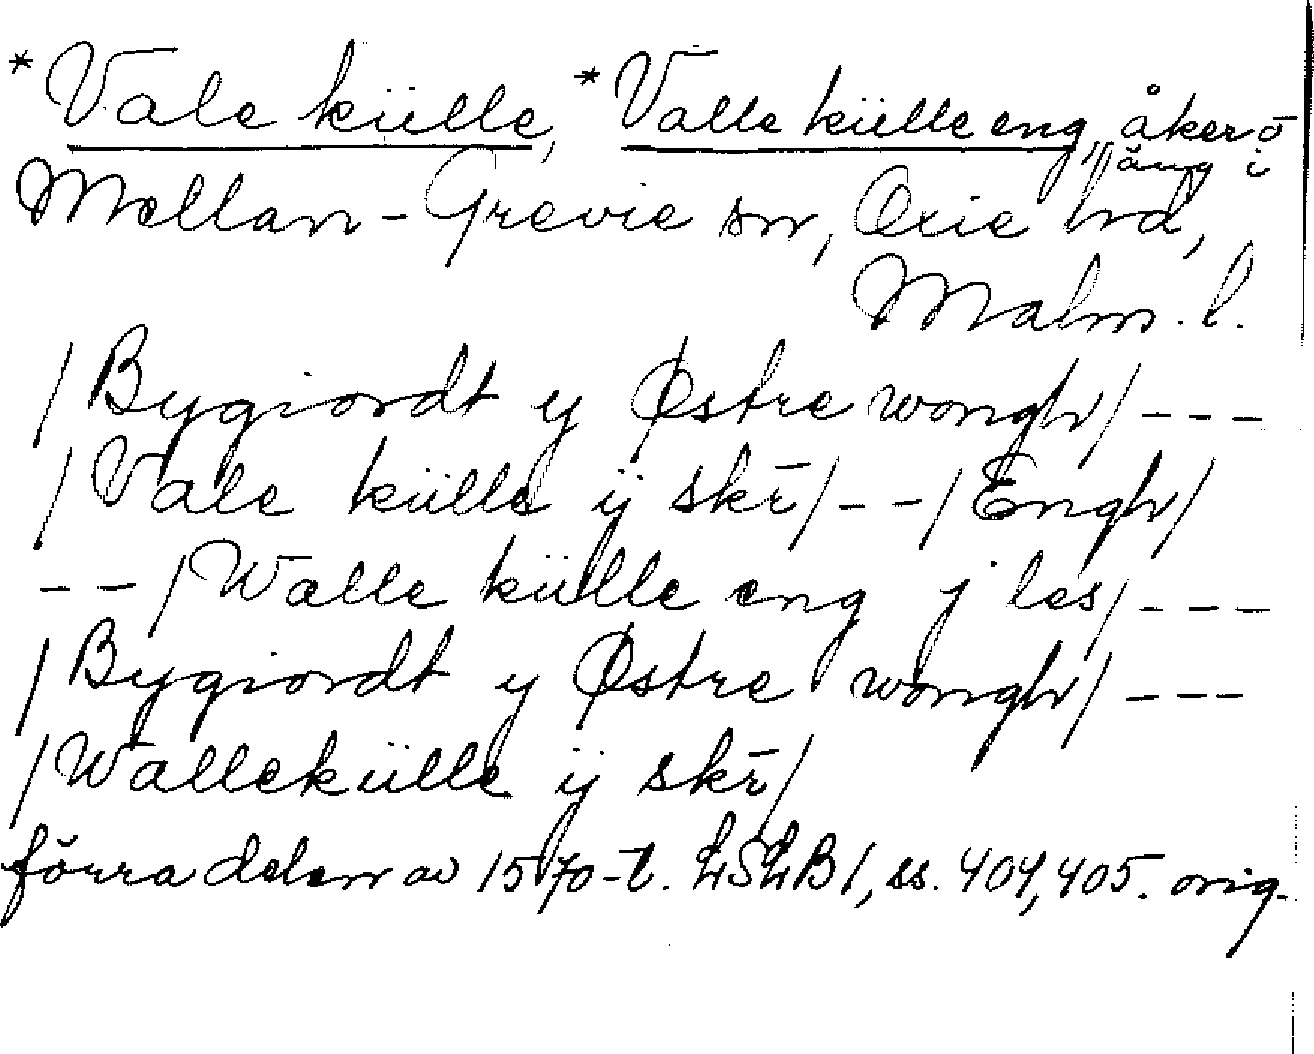 *Vale külle, *Valle külle eng, åker o
äng i
Mellan-Grevie sn, Oxie hd,
Malm. l.
/Bygiordt y Østre wongh/ ---
/Vale külle ÿ skr̄/ --/Engh/
--/Walle külle eng j les/ ---
/Bygiordt y Østre wongh/ ---
/Wallekülle ÿ skr̄/
förra delen av 1570-t. LSLB1, ss. 404, 405. orig.